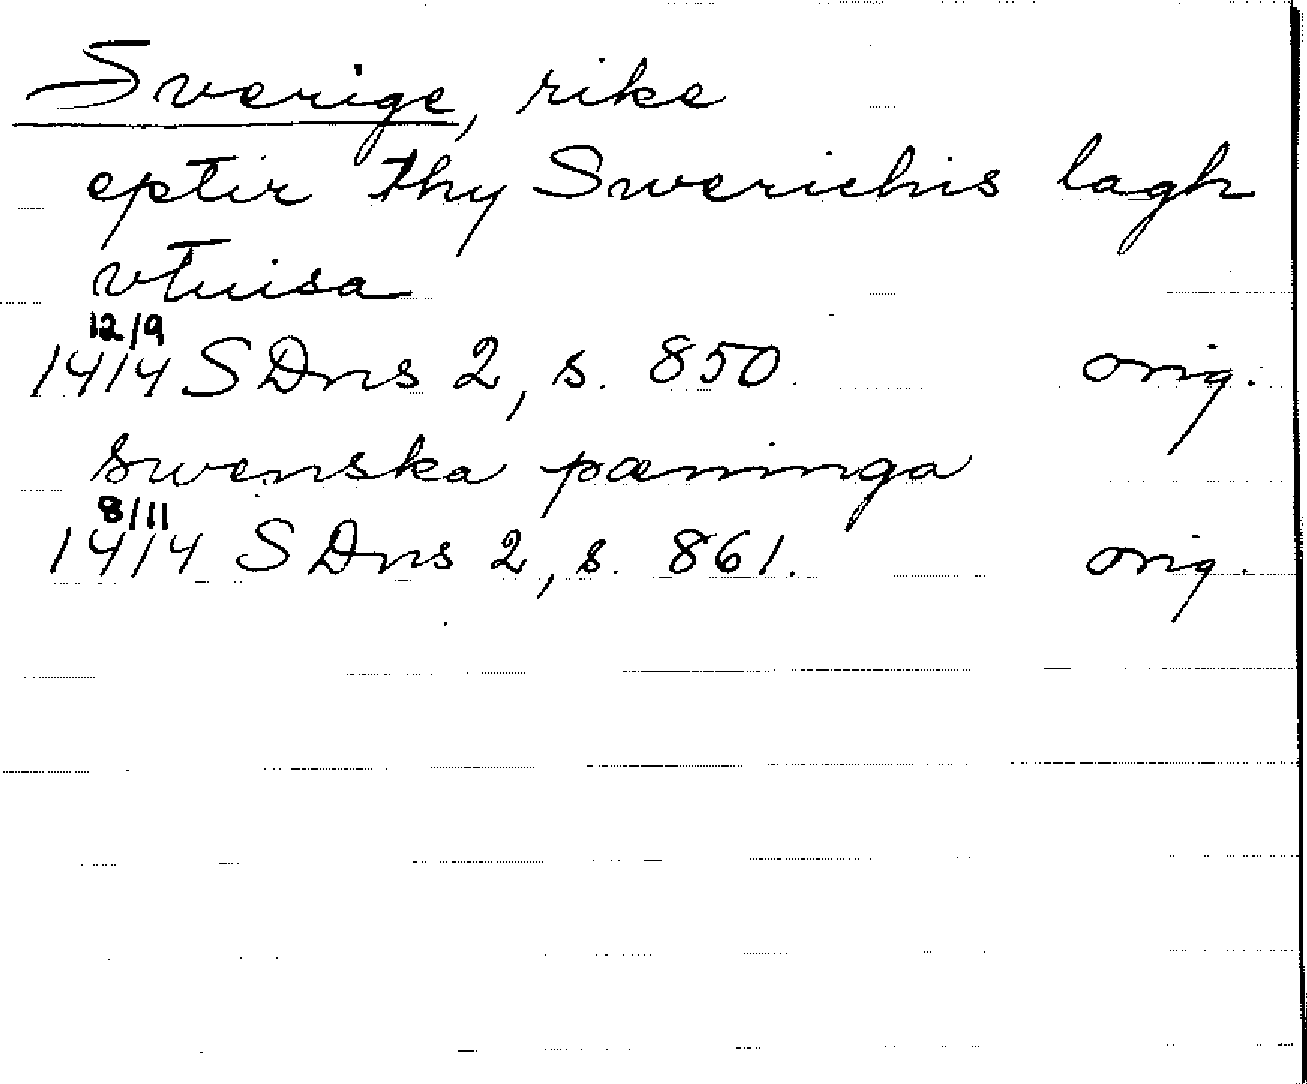 Sverige, rike
eptir thy Swerichis lagh
vtuisa
12/9
1414 SDns 2, s. 850. orig.
swenska pæninga
8/11
1414 SDns 2, s. 861. orig.